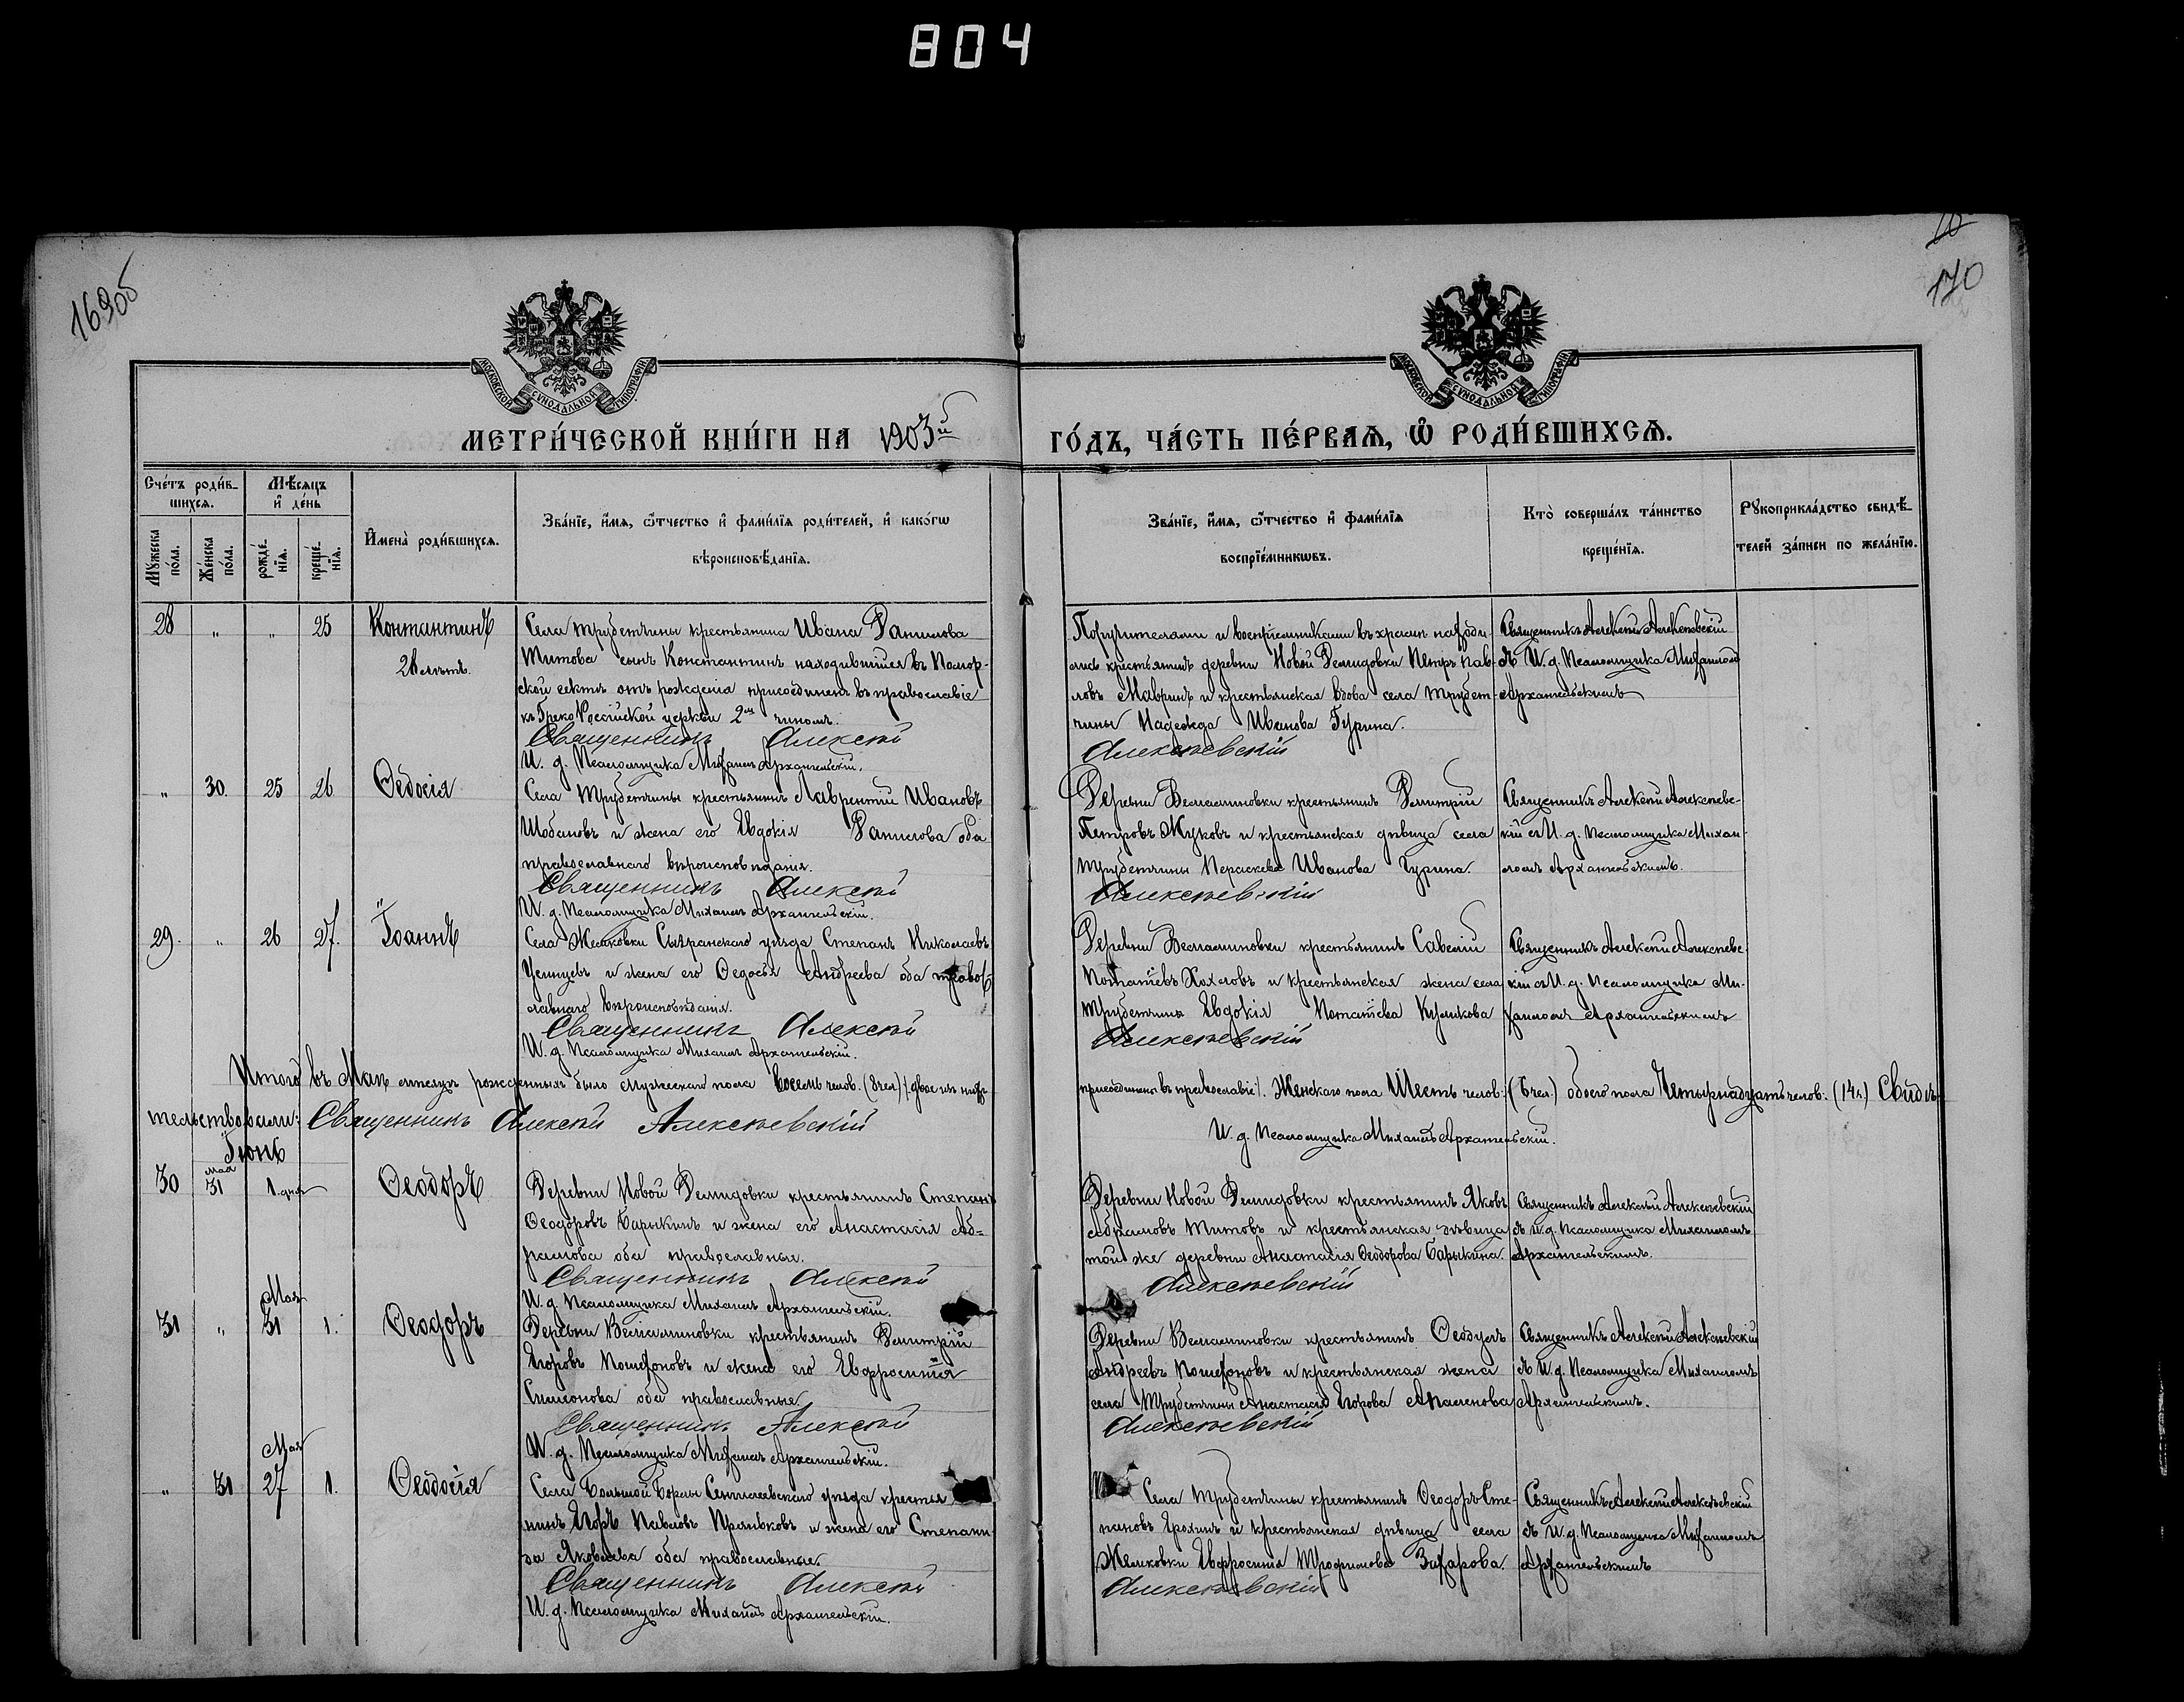 804
169об
170
МОСКОВСКОЙ СѴНОДАЛЬНОЙ ТИПОГРАФІИ
МОСКОВСКОЙ СѴНОДАЛЬНОЙ ТИПОГРАФІИ
МЕТРИ́ЧЕСКОЙ КНИ́ГИ НА 1903й ГО́ДЪ, ЧА́СТЬ ПЕ́РВАѦ, Ѡ҆ РОДИ́ВШИХСѦ.
Сче́тъ роди́вшихсѧ.
Мѣ́сѧцъ и҆ де́нь
Мꙋ́жеска по́ла.
Же́нска по́ла.
рожде́нїѧ.
креще́нїѧ.
И҆мена̀ роди́вшихсѧ.
Зва́нїе, и҆́мѧ, ѻ҆́тчество и҆ фами́лїѧ роди́телей, и҆ како́гѡ
вѣроисповѣ́данїѧ.
Зва́нїе, и҆́мѧ, ѻ҆́тчество и҆ фами́лїѧ
воспрїе́мникѡвъ.
Кто̀ соверша́лъ та́инство
креще́нїѧ.
Рꙋкоприкла́дство свидѣ́телей за́писи по жела́нїю.
28 " " 25 Контантинъ
Села Трубетчины крестьянина Ивана Данилова
Титова сынъ Константинъ находившійся въ Помор-
ской сектѣ отъ рожденія присоединенъ въ православіе
къ Греко Россійской церкви 2м чиномъ.
Священникъ Алексѣй
И. д. Псаломщика Михаилъ Архангельскій.
Поручителями и воспріемниками въ храмѣ находи-
лись крестьянинъ деревни Новой Демидовки Петръ Пав-
ловъ Мавринъ и крестьянская вдова села Трубет-
чины Надежда Иванова Гурина.
Алексѣевскій
Священникъ Алексѣй Алексѣевскій
съ И. д. Псаломщика Михаиломъ
Архангельскимъ
" 30. 25 26 Ѳедосія
Села Трубетчины крестьянинъ Лаврентій Ивановъ
Шобановъ и жена его Евдокія Данилова оба
православнаго вѣроисповѣданія.
Священникъ Алексѣй
И. д. Псаломщика Михаилъ Архангельскій.
Деревни Вельяминовки крестьянинъ Димитрій
Петровъ Жуковъ и крестьянская дѣвица села
Трубетчины Параскева Иванова Гурина.
Алексѣевскій
Священникъ Алексѣй Алексѣевс-
кій съ И. д. Псаломщика Михаи-
ломъ Архангельскимъ.
29. " 26 27. Іоаннъ
Села Жемковки Сызранскаго уѣзда Степанъ Николаевъ
и жена его Ѳедосья Андреева оба правос-
лавнаго вѣроисповѣданія.
Священникъ Алексѣй
И. д. Псаломщика Михаилъ Архангельскій.
Деревни Вельяминовки крестьянинъ Савелій
Потапіевъ Хохловъ и крестьянская жена села
Трубетчины Евдокія Потапіева Куликова
Алексѣевскій
Священникъ Алексѣй Алексѣевс-
кій съ И. д. Псаломщика Ми-
хаиломъ Архангельскимъ
Итого въ Маѣ мѣсяцѣ рожденныхъ было мужескаго пола восемь челов. (8 чел) /: двое изъ нихъ присоединены въ православіе/. Женскаго пола Шесть челов: (6 чел.) обоего пола Четырнадцать челов. (14 ч.) Свидѣ-
тельствовали: Священникъ Алексѣй Алексѣевскій
И. д. Псаломщика Михаилъ Архангельскій.
Іюнь
30 мая 31 1. дня Ѳеодоръ
Деревни Новой Демидовки крестьянинъ Степанъ
Ѳеодоровъ Барыкинъ и жена его Анастасія Аб-
рамова оба православные.
Священникъ Алексѣй
И. д. Псаломщика Михаилъ Архангельскій.
Деревни Новой Демидовки крестьянинъ Яковъ
Абрамовъ Титовъ и крестьянская дѣвица
той же деревни Анастасія Ѳеодорова Барыкина.
Алексѣевскій
Священникъ Алексѣй Алексѣевскій
съ И. д. Псаломщика Михаиломъ
Архангельскимъ.
31 " Мая 31 1. Ѳеодоръ
Деревни Вельяминовки крестьянинъ Димитрій
Егоровъ и жена его Евфросинія
Симеонова оба православные
Священникъ Алексѣй
И. д. Псаломщика Михаилъ Архангельскій.
Деревни Вельяминовки крестьянинъ
Андреевъ и крестьянская жена
села Трубетчины Анастасія Егорова
Алексѣевскій
Священникъ Алексѣй Алексѣевскій
съ И. д. Псаломщика Михаиломъ
Архангельскимъ.
" 31 Мая 27 1. Ѳеодосія
Села Большой Борлы Сенгилеевскаго уѣзда крестья
нинъ Егоръ Павловъ и жена его Степани-
да Яковлева оба православные.
Священникъ Алексѣй
И. д. Псаломщика Михаилъ Архангельскій.
Села Трубетчины крестьянинъ Ѳеодоръ Сте-
пановъ Ерохинъ и крестьянская дѣвица села
Жемковки Евфросинія Трофимова Захарова.
Алексѣевскій
Священникъ Алексѣй Алексѣевскій
съ И. д. Псаломщика Михаиломъ
Архангельскимъ